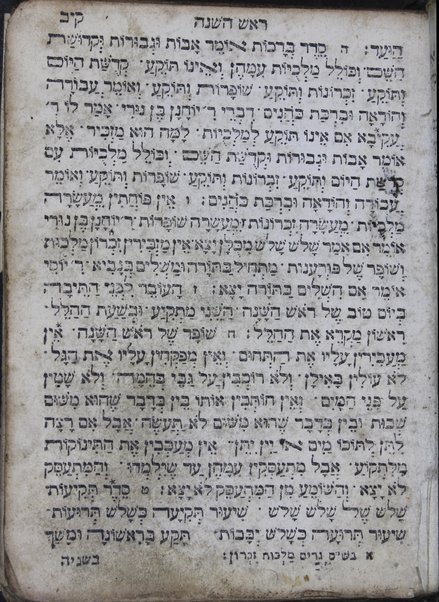 ראש השנה קיב
היער: ה סדר ברכות אומר אבות וגבורות וקדושת
השם וכולל מלכיות עמהן ואינו תוקע קדשת היום
ותוקע זכרונות ותוקע שופרות ותוקע ואומר עבודה
והודאה וברכת כהנים דברי ר יוחנן בן נורי אמר לו ר
עקיבא אם אינו תוקע למלכיות למה הוא מזכיר אלא
אומר אבות וגבורות וקדשת השם וכולל מלכיות עם
קדשת היום ותוקע זכרונות ותוקע שופרות ותוקע ואומר
עבודה והודאה וברכת כהנים: ו אין פוחתין מעשרה
מלכיות מעשרה זכרונות מעשרה שופרות ר יוחנן בן נורי
אומר אם אמר שלש שלש מכלן יצא אין מזכירין זכרון מלכות
ושופר של פורענות מתחיל בתורה ומשלים בנביא ר יוסי
אומר אם השלים בתורה יצא: ז העובר לפני התיבה
ביום טוב של ראש השנה השני מתקיע ובשעת ההלל
ראשון מקרא את ההלל: ח שופר של ראש השנה אין
מעבירין עליו את התחום ואין מפקחין עליו את הגל
לא עולין באילן ולא רוכבין על גבי בהמה ולא שטין
על פני המים ואין חותכין אותו בין בדבר שהוא משום
שבות ובין בדבר שהוא משום לא תעשה אבל אם רצה
ליתן לתוכו מים או יין יתן אין מעכבין את התינוקות
מלתקוע אבל מתעסקין עמהן עד שילמדו והמתעסק
לא יצא והשומע מן המתעסק לא יצא: ט סדר תקיעות
שלש של שלש שלש שיעור תקיעה כשלש תרועות
שיעור תרועה כשלש יבבות תקע בראשונה ומשך
א בש״ס גרים מלכות זכרון: בשניה